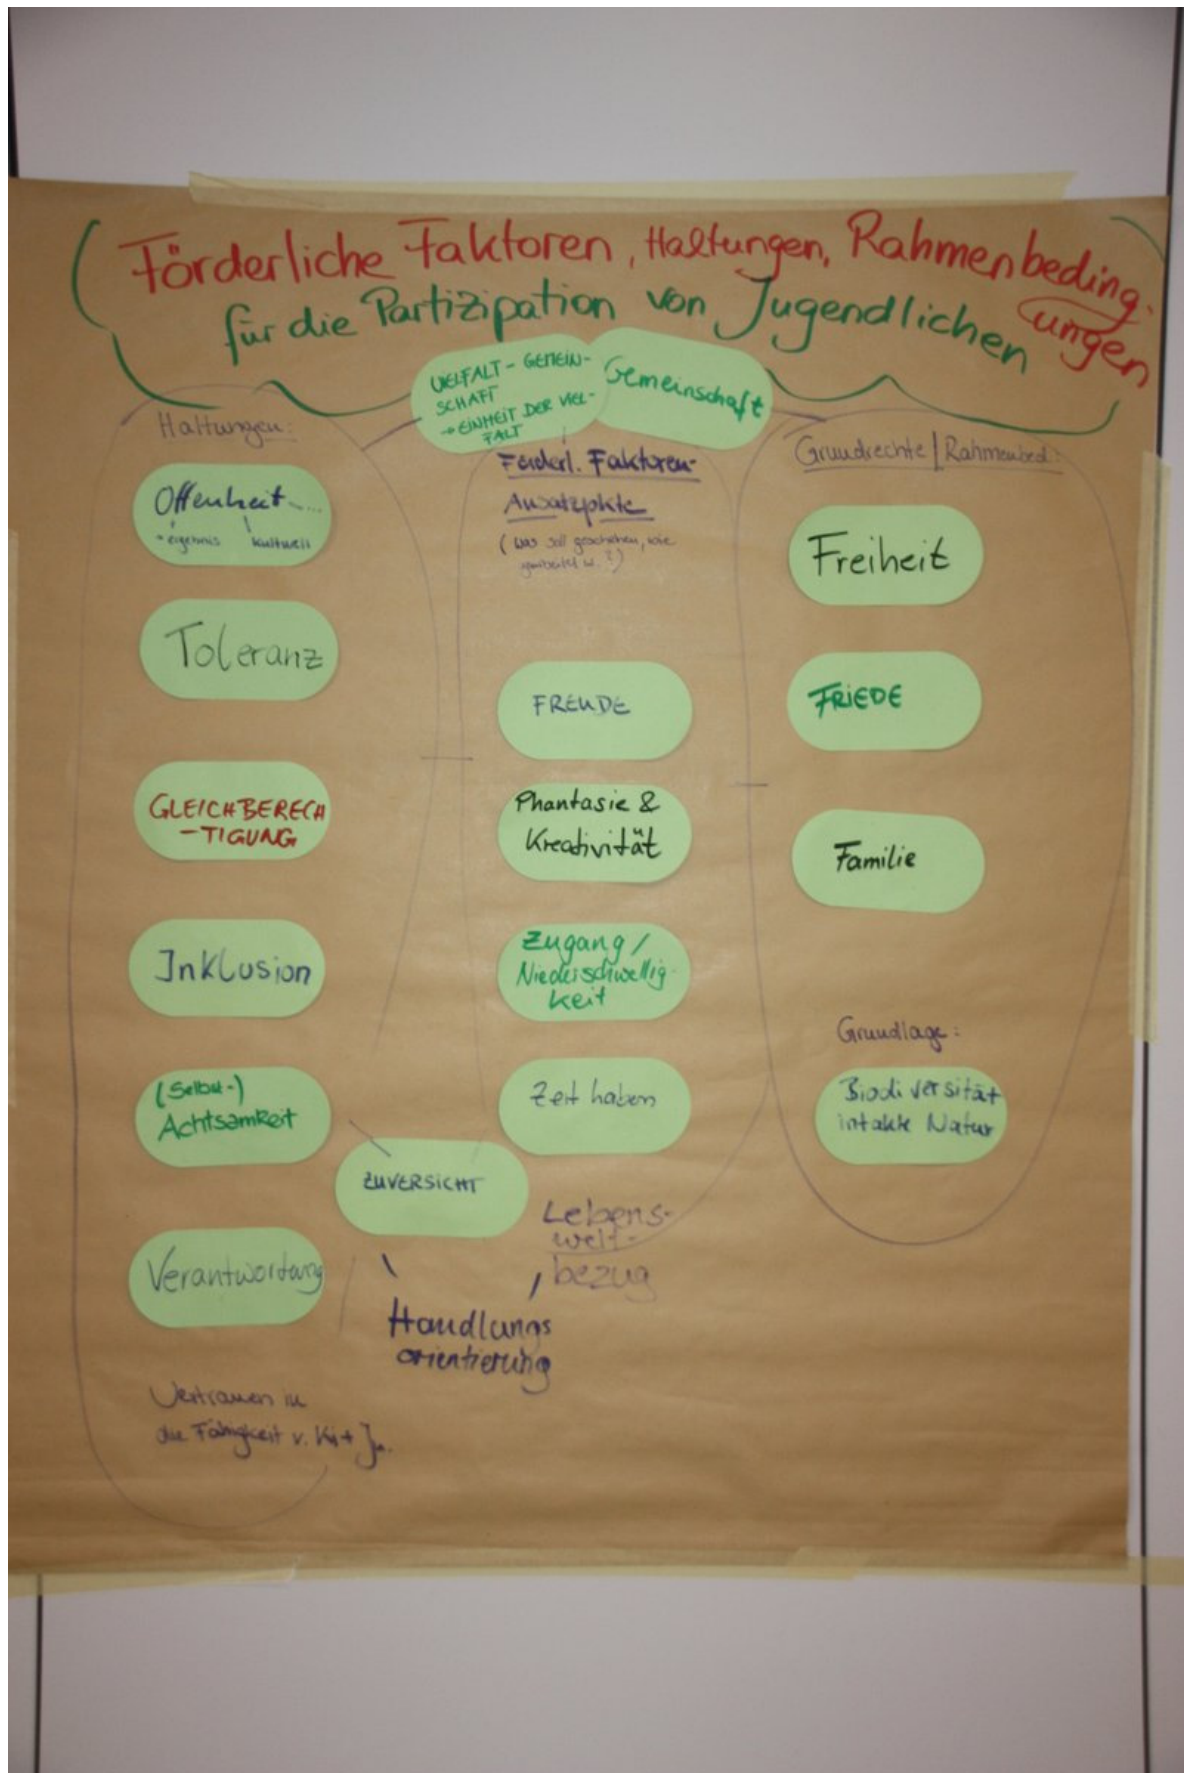 Förderliche Faktoren, Haltungen, Rahmenbeding.
ungen
für die Partizipation von Jugendlichen
VIELFALT - GEMEIN-
SCHAFT
→ EINHEIT DER VIEL-
FALT
Gemeinschaft
Haltungen:
Offenheit ...
ergebnis kulturell
Toleranz
GLEICHBERECH
-TIGUNG
Inklusion
(Selbst-)
Achtsamkeit
Verantwortung
Vertrauen in
die Fähigkeit v. Ki + Ju.
Förderl. Faktoren-
Ansatzpkte
(was soll geschehen, wie
gearbeitet w. ?)
FREUDE
Phantasie &
Kreativität
Zugang /
Niederschwellig-
keit
Zeit haben
ZUVERSICHT
Lebens-
welt-
bezug
Handlungs
orientierung
Grundrechte | Rahmenbed.:
Freiheit
FRIEDE
Familie
Grundlage:
Biodiversität
intakte Natur